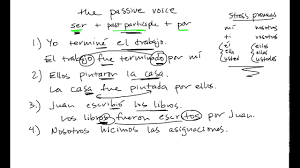 the passive voice
ser + past participle + por
1) Yo terminé el trabajo.
El trabajo fue terminado por mí
2) Ellos pintaron la casa.
La casa fue pintada por ellos.
3.) Juan escribió los libros.
Los libros fueron escritos por Juan.
4) Nosotros hicimos las asignaciones.
Stress pronouns
mí nosotros
ti vosotros
él ellos
ella ellas
usted ustedes